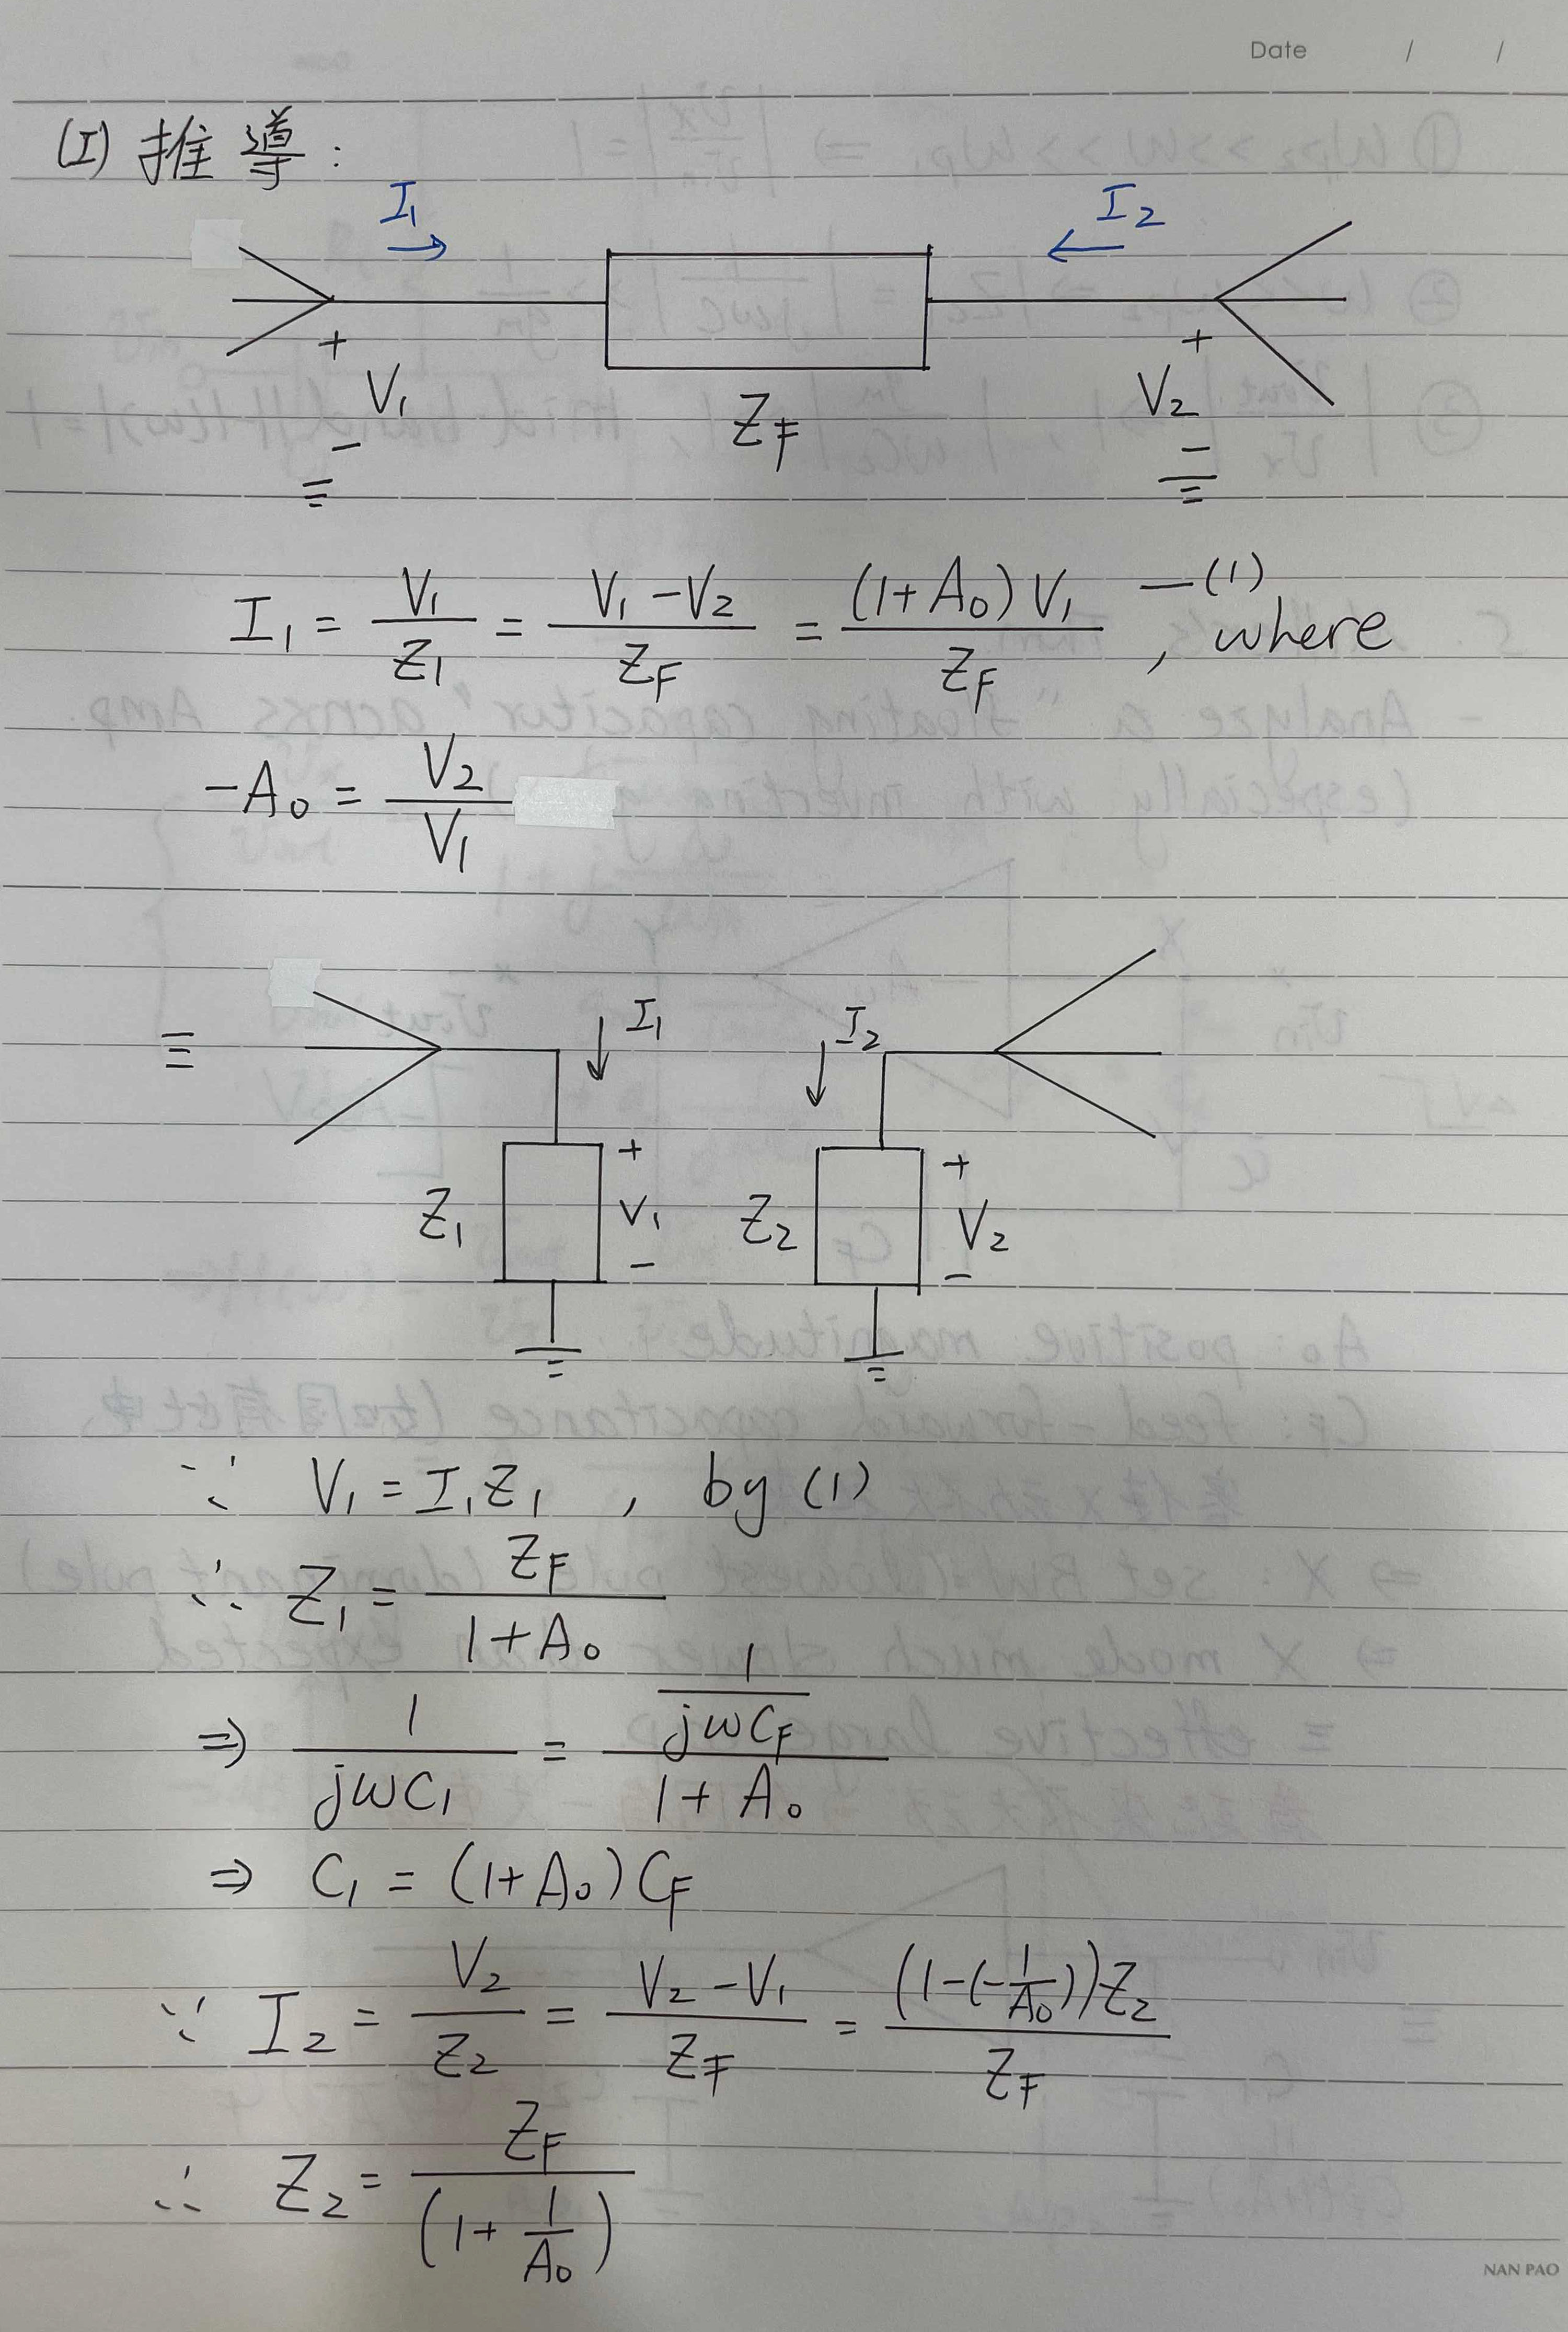 Date / /
(I) 推導:
I₁ → ← I₂
+ V₁ − Z_F + V₂ −
I₁ = V₁/Z₁ = (V₁ − V₂)/Z_F = (1+A₀)V₁/Z_F —(1) , where
−A₀ = V₂/V₁
≡ I₁ I₂
Z₁ + V₁ − Z₂ + V₂ −
∵ V₁ = I₁Z₁ , by (1)
∴ Z₁ = Z_F/(1+A₀)
⇒ 1/(jωC₁) = (1/(jωC_F))/(1+A₀)
⇒ C₁ = (1+A₀)C_F
∵ I₂ = V₂/Z₂ = (V₂ − V₁)/Z_F = (1−(−1/A₀))Z₂/Z_F
∴ Z₂ = Z_F/(1+1/A₀)
NAN PAO